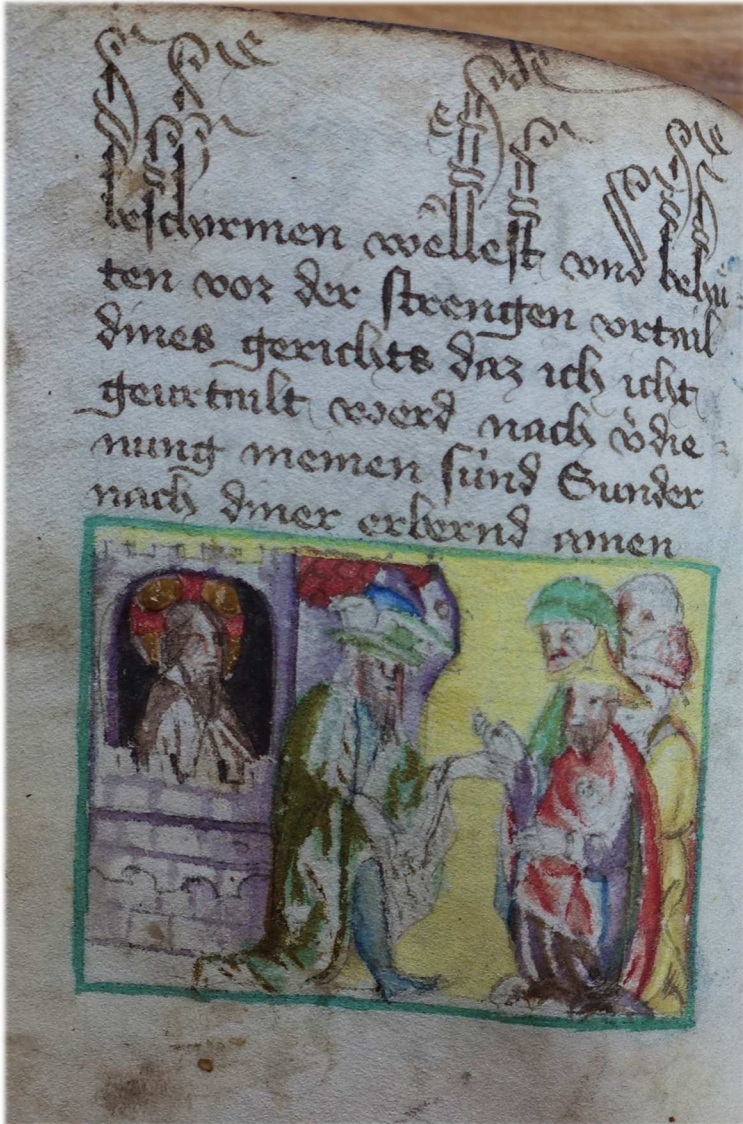 beschyrmen wellest vnd behü=
ten vor der strengen vrtail
dines gerichts daz ich icht
geurtailt werd nach v̾die=
nung meinen sünd Sunder
nach diner erbermd amen